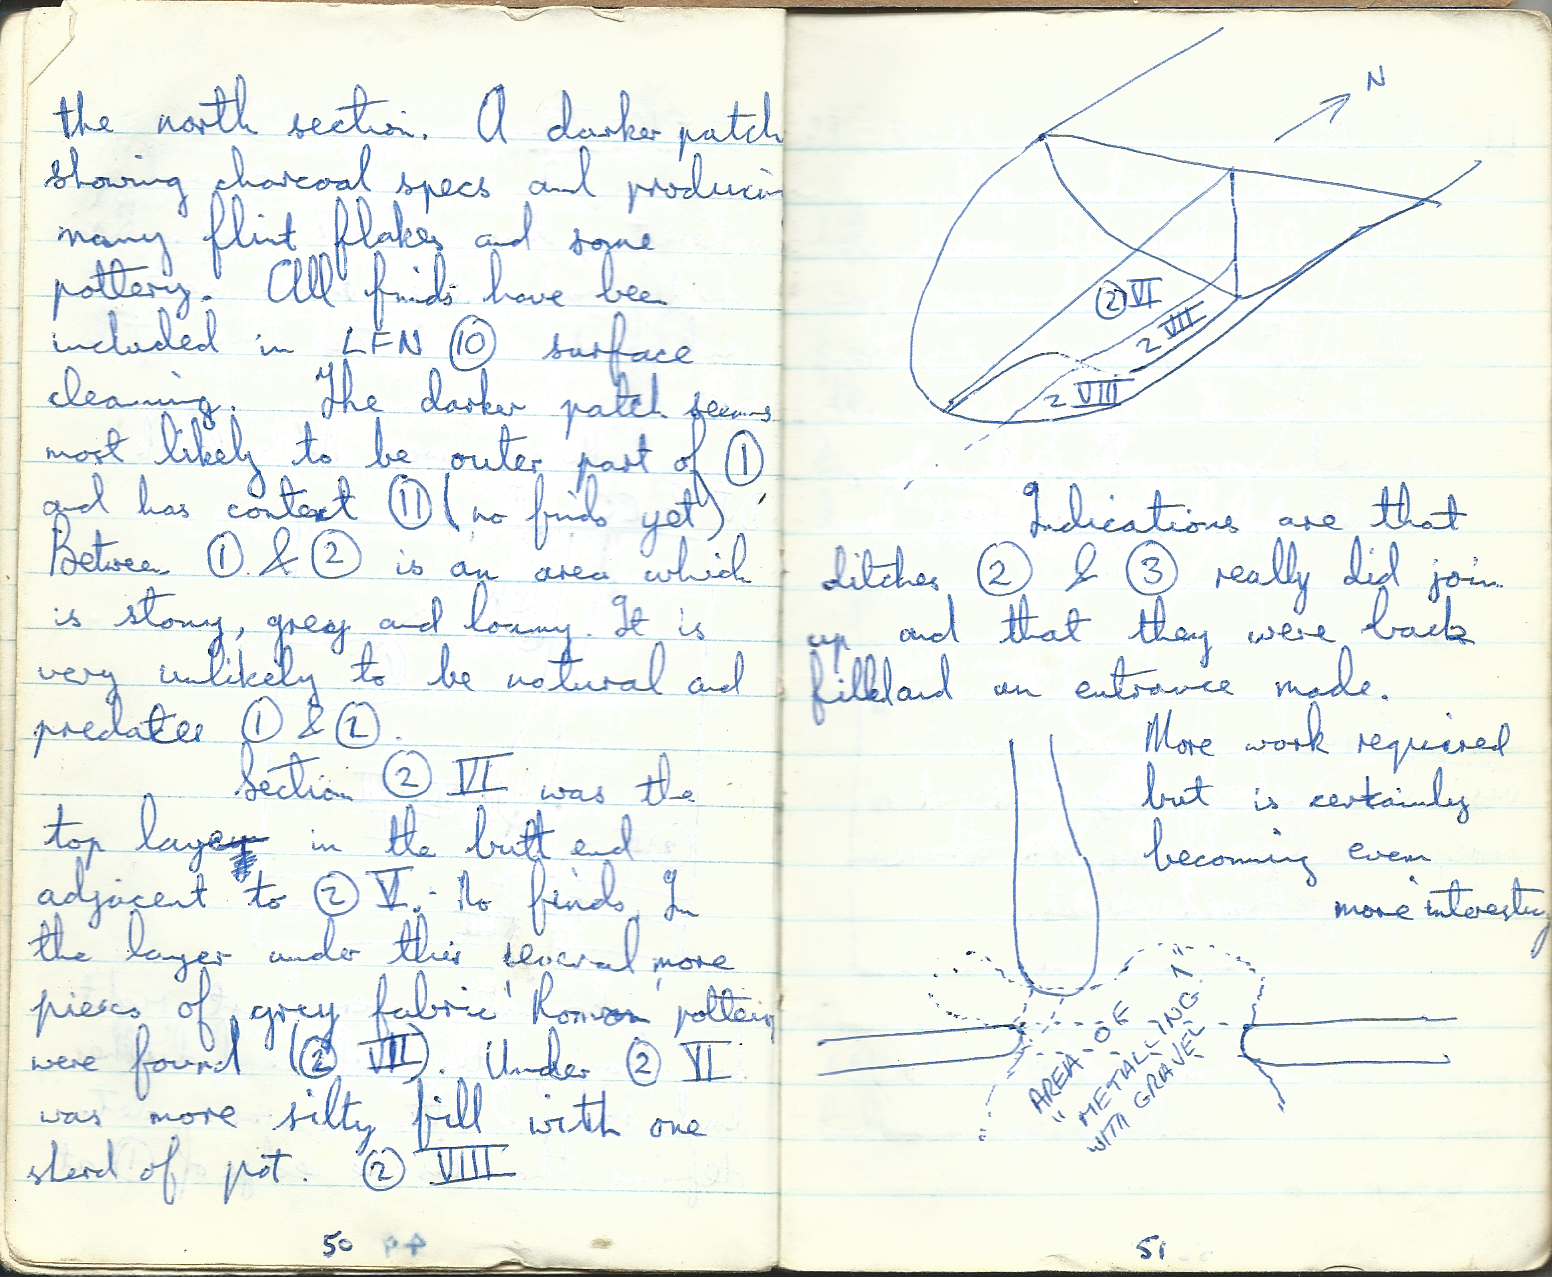 the north section. A darker patch
showing charcoal specs and producin
many flint flakes and some
pottery. All finds have been
included in LFN ⑩ surface
cleaning. The darker patch seems
most likely to be outer part of ①
and has context ⑪ (no finds yet)
Between ① & ② is an area which
is stony, grey and loamy. It is
very unlikely to be natural and
predates ① & ②.
Section ② VI was the
top layer in the butt end
adjacent to ② V. No finds. In
the layer under this several more
pieces of grey fabric 'Roman' pottery
were found (② VII). Under ② VI
was more silty fill with one
sherd of pot. ② VIII
50
N
② VI
2 VII
2 VIII
Indications are that
ditches ② & ③ really did join
up and that they were back
filled and an entrance made.
More work required
but is certainly
becoming even
more interesting
AREA OF
"METALLING"
WITH GRAVEL
51